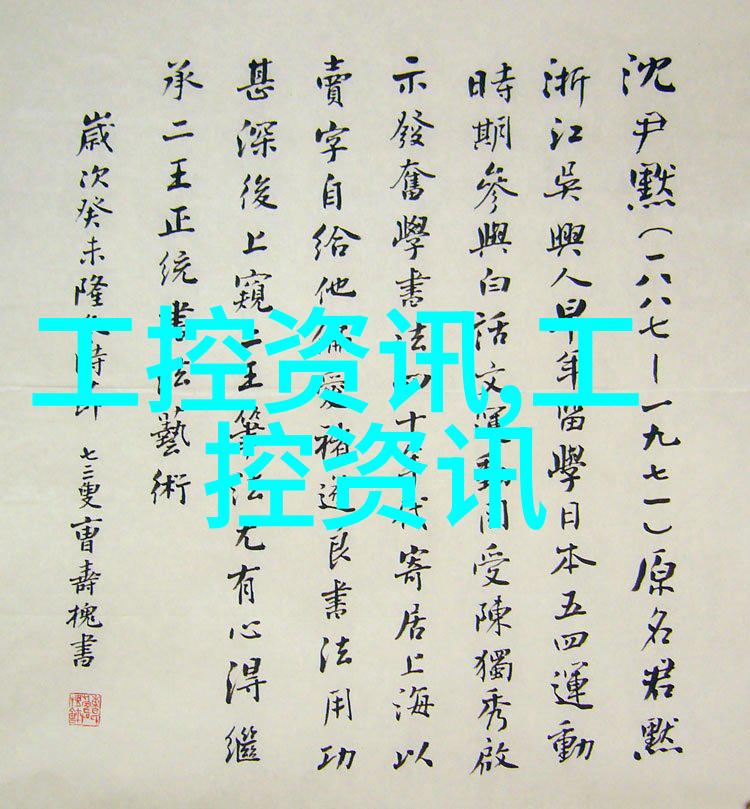 沈尹默（一八八七—一九七一）原名君默
浙江吳興人早年留學日本五四運動
時期參與白話文運動因受陳獨秀啟
示發奮學書法四十年代寄居上海以
賣字自給他偏愛褚遂良書法用功
甚深後上窺二王筆法尤有心得繼
承二王正统書法藝術
歲次癸未隆冬時節 七三叟曹壽槐書
工控资讯,工
控资讯